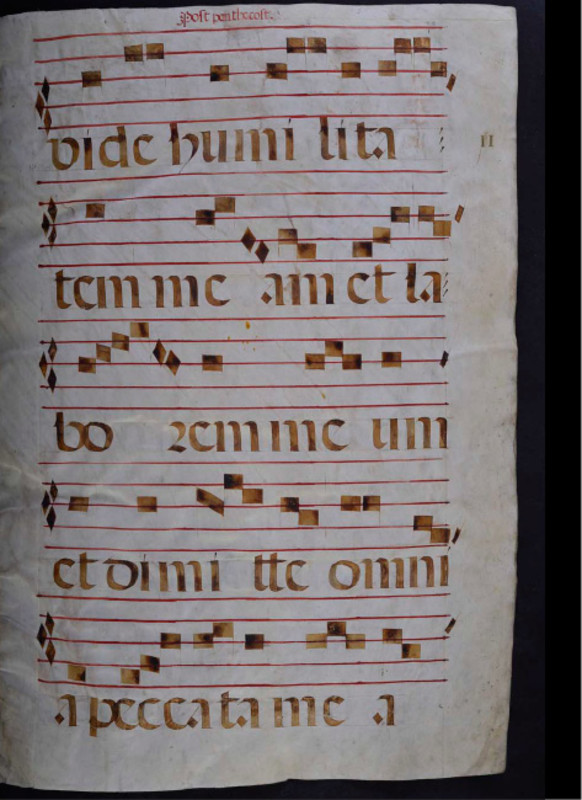 Post penthecost.
vide humi lita
II
tem me am et la
bo rem me um
et dimi tte omni
a peccata me a